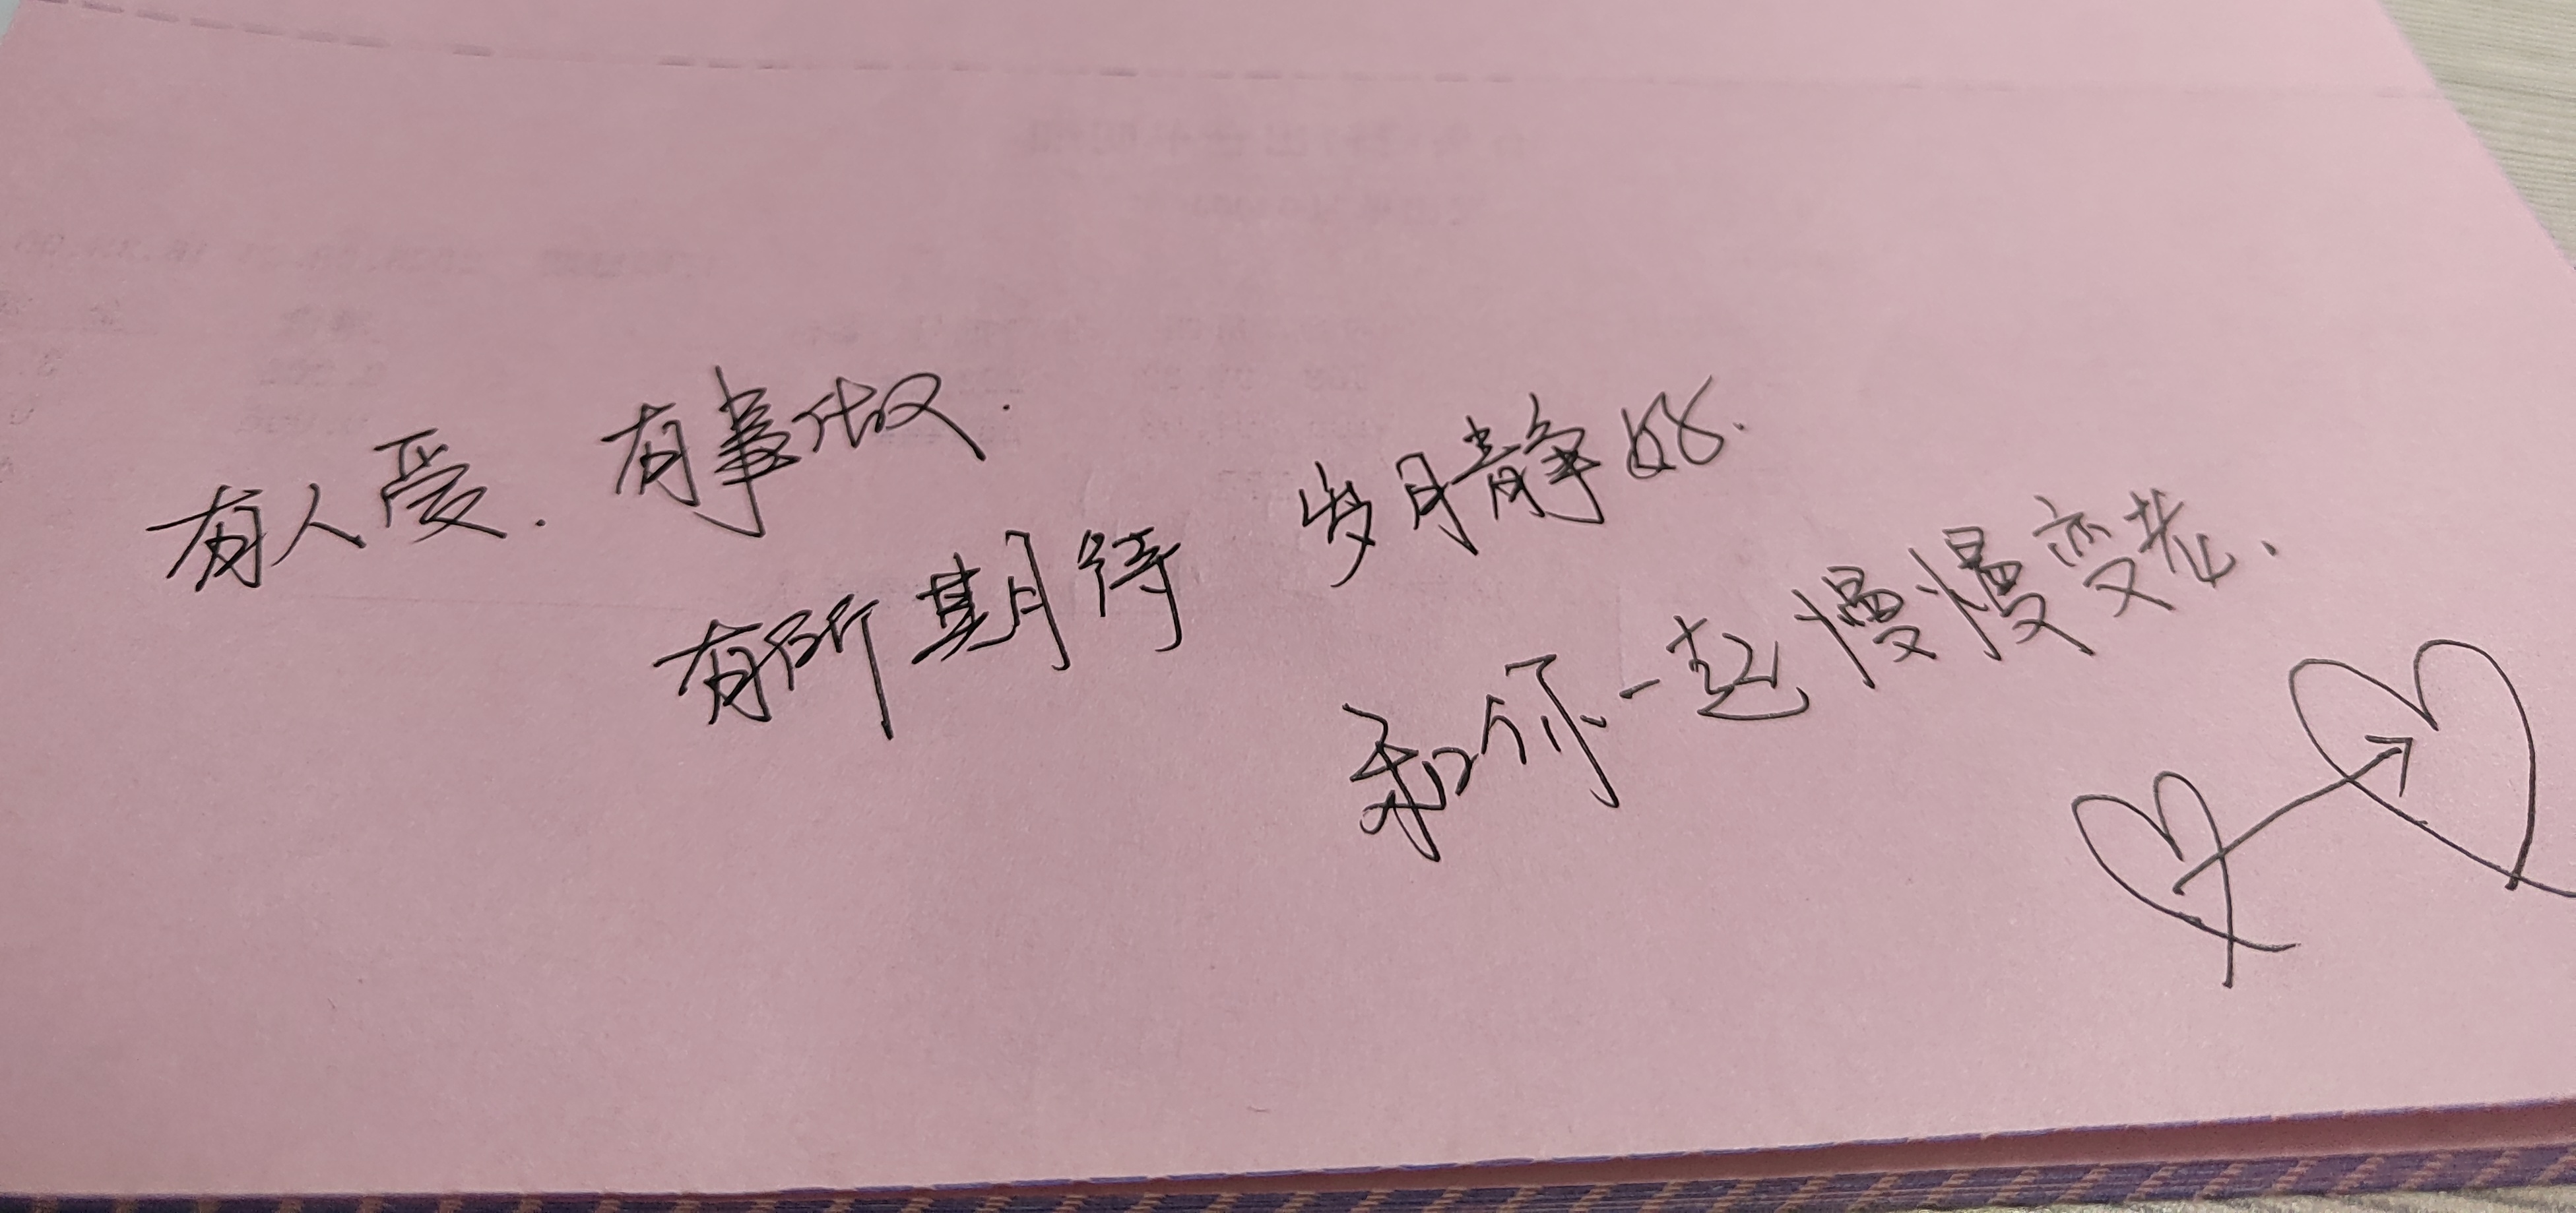 有人爱.有事做.
有所期待
岁月静好.
和你一起慢慢变老.